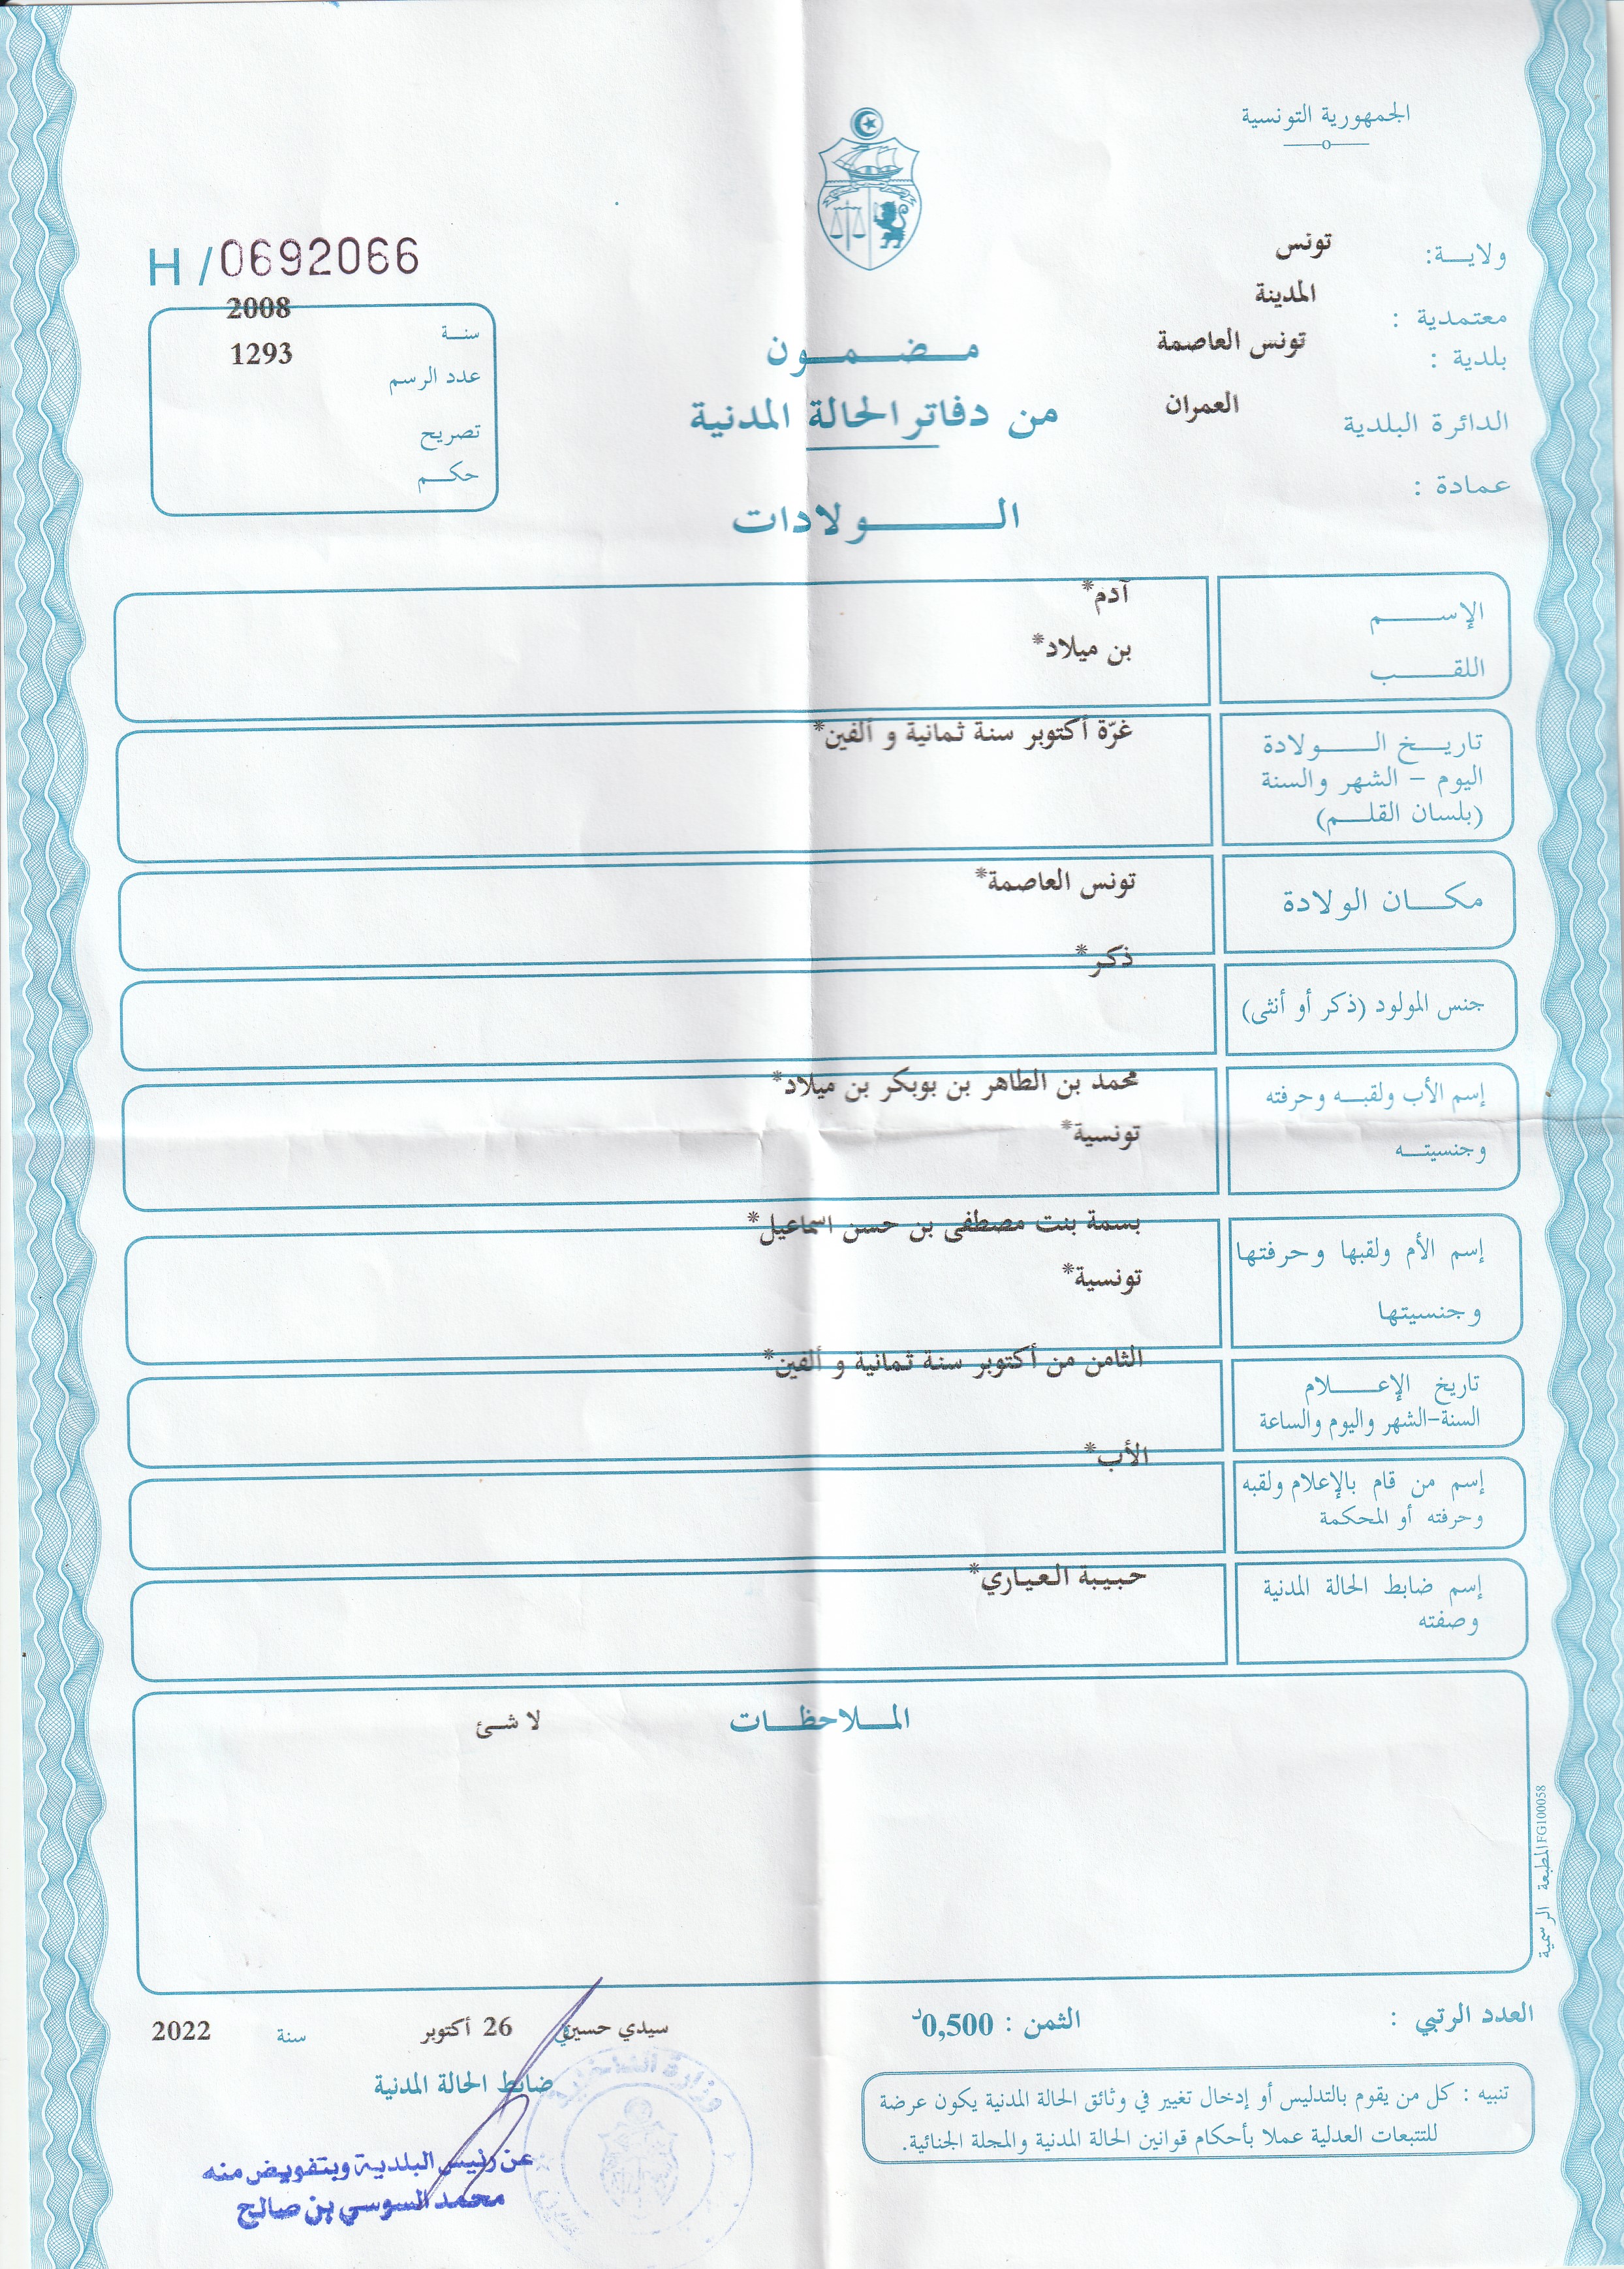 الجمهورية التونسية
ولايـــة: تونس
معتمدية : المدينة
بلدية : تونس العاصمة
الدائرة البلدية العمران
عمادة :
H/0692066
سنـة 2008
عدد الرسم 1293
تصريح
حكــم
مـضـمـون
من دفاتر الحالة المدنية
الــولادات
الإســـم آدم*
اللقـــب بن ميلاد*
تاريــخ الـــولادة غرّة أكتوبر سنة ثمانية و ألفين*
اليوم – الشهر والسنة
(بلسان القلــم)
مكــان الولادة تونس العاصمة*
جنس المولود (ذكر أو أنثى) ذكر*
إسم الأب ولقبــه وحرفته محمد بن الطاهر بن بوبكر بن ميلاد*
وجنسيتــه تونسية*
إسم الأم ولقبها وحرفتها بسمة بنت مصطفى بن حسن اسماعيل*
وجنسيتها تونسية*
تاريخ الإعـــلام الثامن من أكتوبر سنة ثمانية و ألفين*
السنة-الشهر واليوم والساعة
إسم من قام بالإعلام ولقبه الأب*
وحرفته أو المحكمة
إسم ضابط الحالة المدنية حبيبة العياري*
وصفته
المــلاحظــات
لا شئ
المطبعة الرسمية FG100058
العدد الرتبي :
الثمن : 0,500د
سيدي حسين في 26 أكتوبر سنة 2022
ضابط الحالة المدنية
تنبيه : كل من يقوم بالتدليس أو إدخال تغيير في وثائق الحالة المدنية يكون عرضة
للتتبعات العدلية عملا بأحكام قوانين الحالة المدنية والمجلة الجنائية.
عن رئيس البلدية وبتفويض منه
محمد السوسي بن صالح
وزارة الداخلية